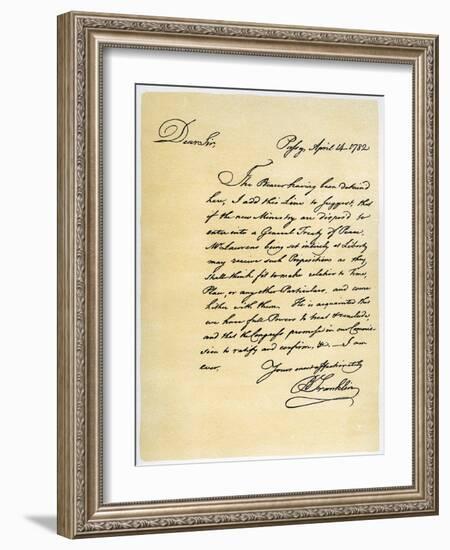 Dear Sir, Passy, April 14. 1782
The Bearer having been detained
here, I add this Line to suggest, that
if the new Ministry are disposed to
enter into a General Treaty of Peace,
Mr Laurens being set intirely at Liberty
may receive such Propositions as they
shall think fit to make relative to Time,
Place, or any other Particulars, and come
hither with them. He is acquainted that
we have full Powers to treat & conclude,
and that the Congress promise in our Commis-
sion to ratify and confirm, &c. — I am
ever, Yours most affectionately
B Franklin